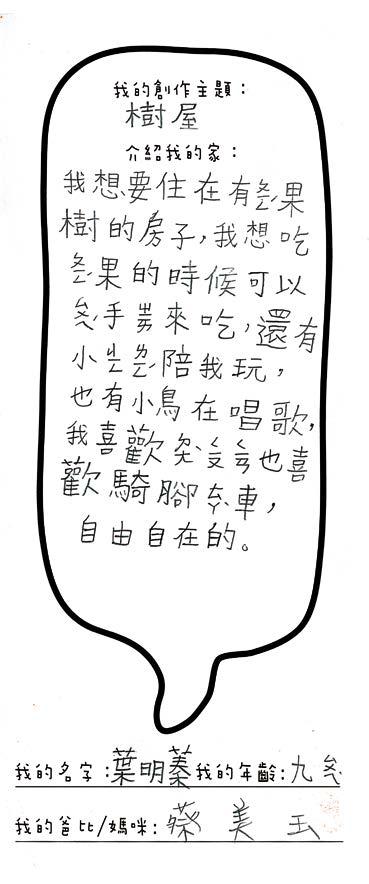 我的創作主題：
樹屋
介紹我的家：
我想要住在有ㄆㄧㄥˊ果
樹的房子,我想吃
ㄆㄧㄥˊ果的時候可以
手來吃,還有
小陪我玩,
也有小鳥在唱歌,
我喜歡也喜
歡騎腳車,
自由自在的。
我的名字:葉明蓁我的年齡:九ㄙㄨㄟˋ
我的爸比/媽咪:蔡美玉